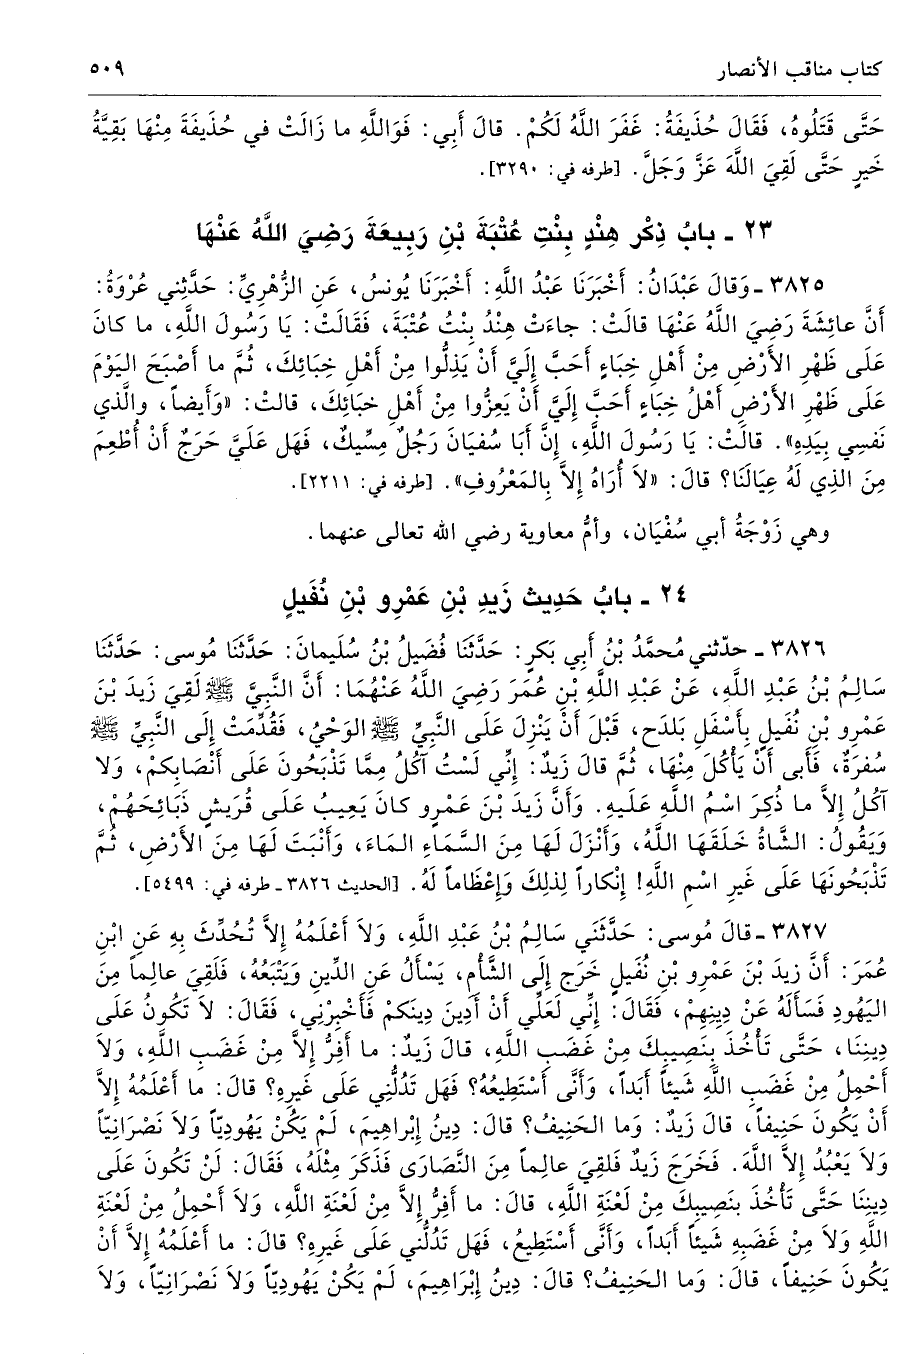 كتاب مناقب الأنصار ٥٠٩
حَتَّى قَتَلُوهُ، فَقَالَ حُذَيفَةُ: غَفَرَ اللَّهُ لَكُمْ. قالَ أَبِي: فَوَاللَّهِ ما زَالَتْ في حُذَيفَةَ مِنْهَا بَقِيَّةُ
خَيرٍ حَتَّى لَقِيَ اللَّهَ عَزَّ وَجَلَّ. [طرفه في: ٣٢٩٠].
٢٣ ـ بابُ ذِكْرِ هِنْدٍ بِنْتِ عُتْبَةَ بْنِ رَبِيعَةَ رَضِيَ اللَّهُ عَنْهَا
٣٨٢٥ ـ وَقالَ عَبْدَانُ: أَخْبَرَنَا عَبْدُ اللَّهِ: أَخْبَرَنَا يُونسُ، عَنِ الزُّهْرِيِّ: حَدَّثَنِي عُرْوَةُ:
أَنَّ عائِشَةَ رَضِيَ اللَّهُ عَنْهَا قالَتْ: جاءَتْ هِنْدُ بِنْتُ عُتْبَةَ، فَقَالَتْ: يَا رَسُولَ اللَّهِ، ما كانَ
عَلَى ظَهْرِ الأَرْضِ مِنْ أَهْلِ خِبَاءٍ أَحَبَّ إِلَيَّ أَنْ يَذِلُّوا مِنْ أَهْلِ خِبَائِكَ، ثُمَّ ما أَصْبَحَ اليَوْمَ
عَلَى ظَهْرِ الأَرْضِ أَهْلُ خِبَاءٍ أَحَبَّ إِلَيَّ أَنْ يَعِزُّوا مِنْ أَهْلِ خبَائِكَ، قالَتْ: «وَأَيضاً، والَّذي
نَفسِي بِيَدِهِ». قالَتْ: يَا رَسُولَ اللَّهِ، إِنَّ أَبَا سُفيَانَ رَجُلٌ مِسِّيكٌ، فَهَل عَلَيَّ حَرَجٌ أَنْ أُطْعِمَ
مِنَ الذِي لَهُ عِيَالَنَا؟ قالَ: «لاَ أُرَاهُ إِلاَّ بِالمَعْرُوفِ». [طرفه في: ٢٢١١].
وهي زَوْجَةُ أبي سُفْيَان، وأمُّ معاوية رضي الله تعالى عنهما.
٢٤ ـ بابُ حَدِيث زَيدِ بْنِ عَمْرِو بْنِ نُفَيلٍ
٣٨٢٦ ـ حدّثني مُحمَّدُ بْنُ أَبِي بَكرٍ: حَدَّثَنَا فُضَيلُ بْنُ سُلَيمانَ: حَدَّثَنَا مُوسى: حَدَّثَنَا
سَالِمُ بْنُ عَبْدِ اللَّهِ، عَنْ عَبْدِ اللَّهِ بْنِ عُمَرَ رَضِيَ اللَّهُ عَنْهُمَا: أَنَّ النَّبِيَّ ﷺ لَقِيَ زَيدَ بْنَ
عَمْرِو بْنِ نُفَيلٍ بِأَسْفَلِ بَلدَحٍ، قَبْلَ أَنْ يَنْزِلَ عَلَى النَّبِيِّ ﷺ الوَحْيُ، فَقُدِّمَتْ إِلَى النَّبِيِّ ﷺ
سُفرَةٌ، فَأَبى أَنْ يَأْكُلَ مِنْهَا، ثُمَّ قالَ زَيدٌ: إِنِّي لَسْتُ آكُلُ مِمَّا تَذْبَحُونَ عَلَى أَنْصَابِكمْ، وَلا
آكُلُ إِلاَّ ما ذُكِرَ اسْمُ اللَّهِ عَلَيهِ. وَأَنَّ زَيدَ بْنَ عَمْرٍو كانَ يَعِيبُ عَلَى قُرَيشٍ ذَبَائِحَهُمْ،
وَيَقُولُ: الشَّاةُ خَلَقَهَا اللَّهُ، وَأَنْزَلَ لَهَا مِنَ السَّمَاءِ المَاءَ، وَأَنْبَتَ لَهَا مِنَ الأَرْضِ، ثُمَّ
تَذْبَحُونَهَا عَلَى غَيرِ اسْمِ اللَّهِ! إِنْكاراً لِذلِكَ وَإِعْظَاماً لَهُ. [الحديث ٣٨٢٦ ـ طرفه في: ٥٤٩٩].
٣٨٢٧ ـ قالَ مُوسى: حَدَّثَنِي سَالِمُ بْنُ عَبْدِ اللَّهِ، وَلاَ أَعْلَمُهُ إِلاَّ تُحُدِّثَ بِهِ عَنِ ابْنِ
عُمَرَ: أَنَّ زيدَ بْنَ عَمْرِو بْنِ نُفَيلٍ خَرَجَ إِلَى الشَّأْمِ، يَسْأَلُ عَنِ الدِّينِ وَيَتْبَعُهُ، فَلَقِيَ عالِماً مِنَ
اليَهُودِ فَسَأَلَهُ عَنْ دِينِهِمْ، فَقَالَ: إِنِّي لَعَلِّي أَنْ أَدِينَ دِينَكمْ فَأَخْبِرْنِي، فَقَالَ: لاَ تَكُونُ عَلَى
دِينِنَا، حَتَّى تَأْخُذَ بِنَصِيبِكَ مِنْ غَضَبِ اللَّهِ، قالَ زَيدٌ: ما أَفِرُّ إِلاَّ مِنْ غَضَبِ اللَّهِ، وَلاَ
أَحْمِلُ مِنْ غَضَبِ اللَّهِ شَيئاً أَبَداً، وَأَنَّى أَسْتَطِيعُهُ؟ فَهَل تَدُلُّنِي عَلَى غَيرِهِ؟ قالَ: ما أَعْلَمُهُ إِلاَّ
أَنْ يَكُونَ حَنِيفاً، قالَ زَيدٌ: وَما الحَنِيفُ؟ قالَ: دِينُ إِبْراهِيمَ، لَمْ يَكُنْ يَهُودِيّاً وَلاَ نَصْرَانِيّاً
وَلاَ يَعْبُدُ إِلاَّ اللَّهَ. فَخَرَجَ زَيدٌ فَلَقِيَ عالِماً مِنَ النَّصَارَى فَذَكَرَ مِثْلَهُ، فَقَالَ: لَنْ تَكُونَ عَلَى
دِينِنَا حَتَّى تَأْخُذَ بنَصِيبِكَ مِنْ لَعْنَةِ اللَّهِ، قالَ: ما أَفِرُّ إِلاَّ مِنْ لَعْنَةِ اللَّهِ، وَلاَ أَحْمِلُ مِنْ لَعْنَةِ
اللَّهِ وَلاَ مِنْ غَضَبِهِ شَيئاً أَبَداً، وَأَنَّى أَسْتَطِيعُ، فَهَل تَدُلُّنِي عَلَى غَيرِهِ؟ قالَ: ما أَعْلَمُهُ إِلاَّ أَنْ
يَكُونَ حَنِيفاً، قالَ: وَما الحَنِيفُ؟ قالَ: دِينُ إِبْرَاهِيمَ، لَمْ يَكُنْ يَهُودِيّاً وَلاَ نَصْرَانِيّاً، وَلاَ